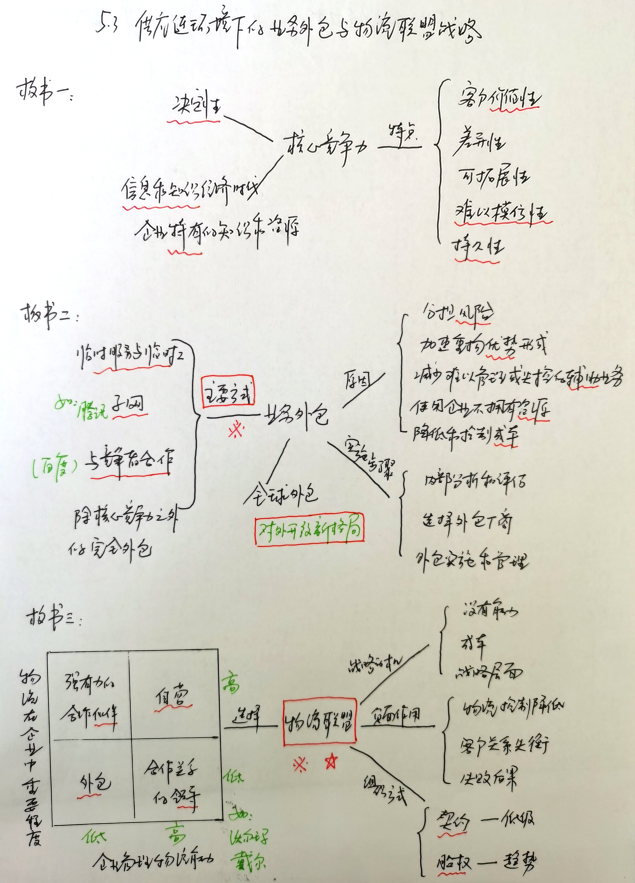 5.3 供应链环境下的业务外包与物流联盟战略
板书一:
决定性
信息和知识经济时代
企业持有的知识和资源
核心竞争力
特点
客户价值性
差异性
可拓展性
难以模仿性
持久性
板书二:
临时服务与临时工
如:腾讯 子网
(百度) 与竞争者合作
除核心竞争力之外
的完全外包
主要方式
※
业务外包
原因
分担风险
加速重构优势形成
减少难以管理或失控的辅助业务
使用企业不拥有的资源
降低和控制成本
实施步骤
内部分析和评估
选择外包厂商
外包实施和管理
全球外包
对外开放新格局
板书三:
物流在企业中重要程度
强有力的
合作伙伴
自营
外包
合作关系
的领导
高
低
低 高
企业管理物流能力
如:
沃尔玛
戴尔
选择
物流联盟
※ ☆
战略动机
没有能力
成本
战略层面
负面作用
物流控制降低
客户关系失衡
失败后果
组织方式
契约 — 低级
股权 — 趋势